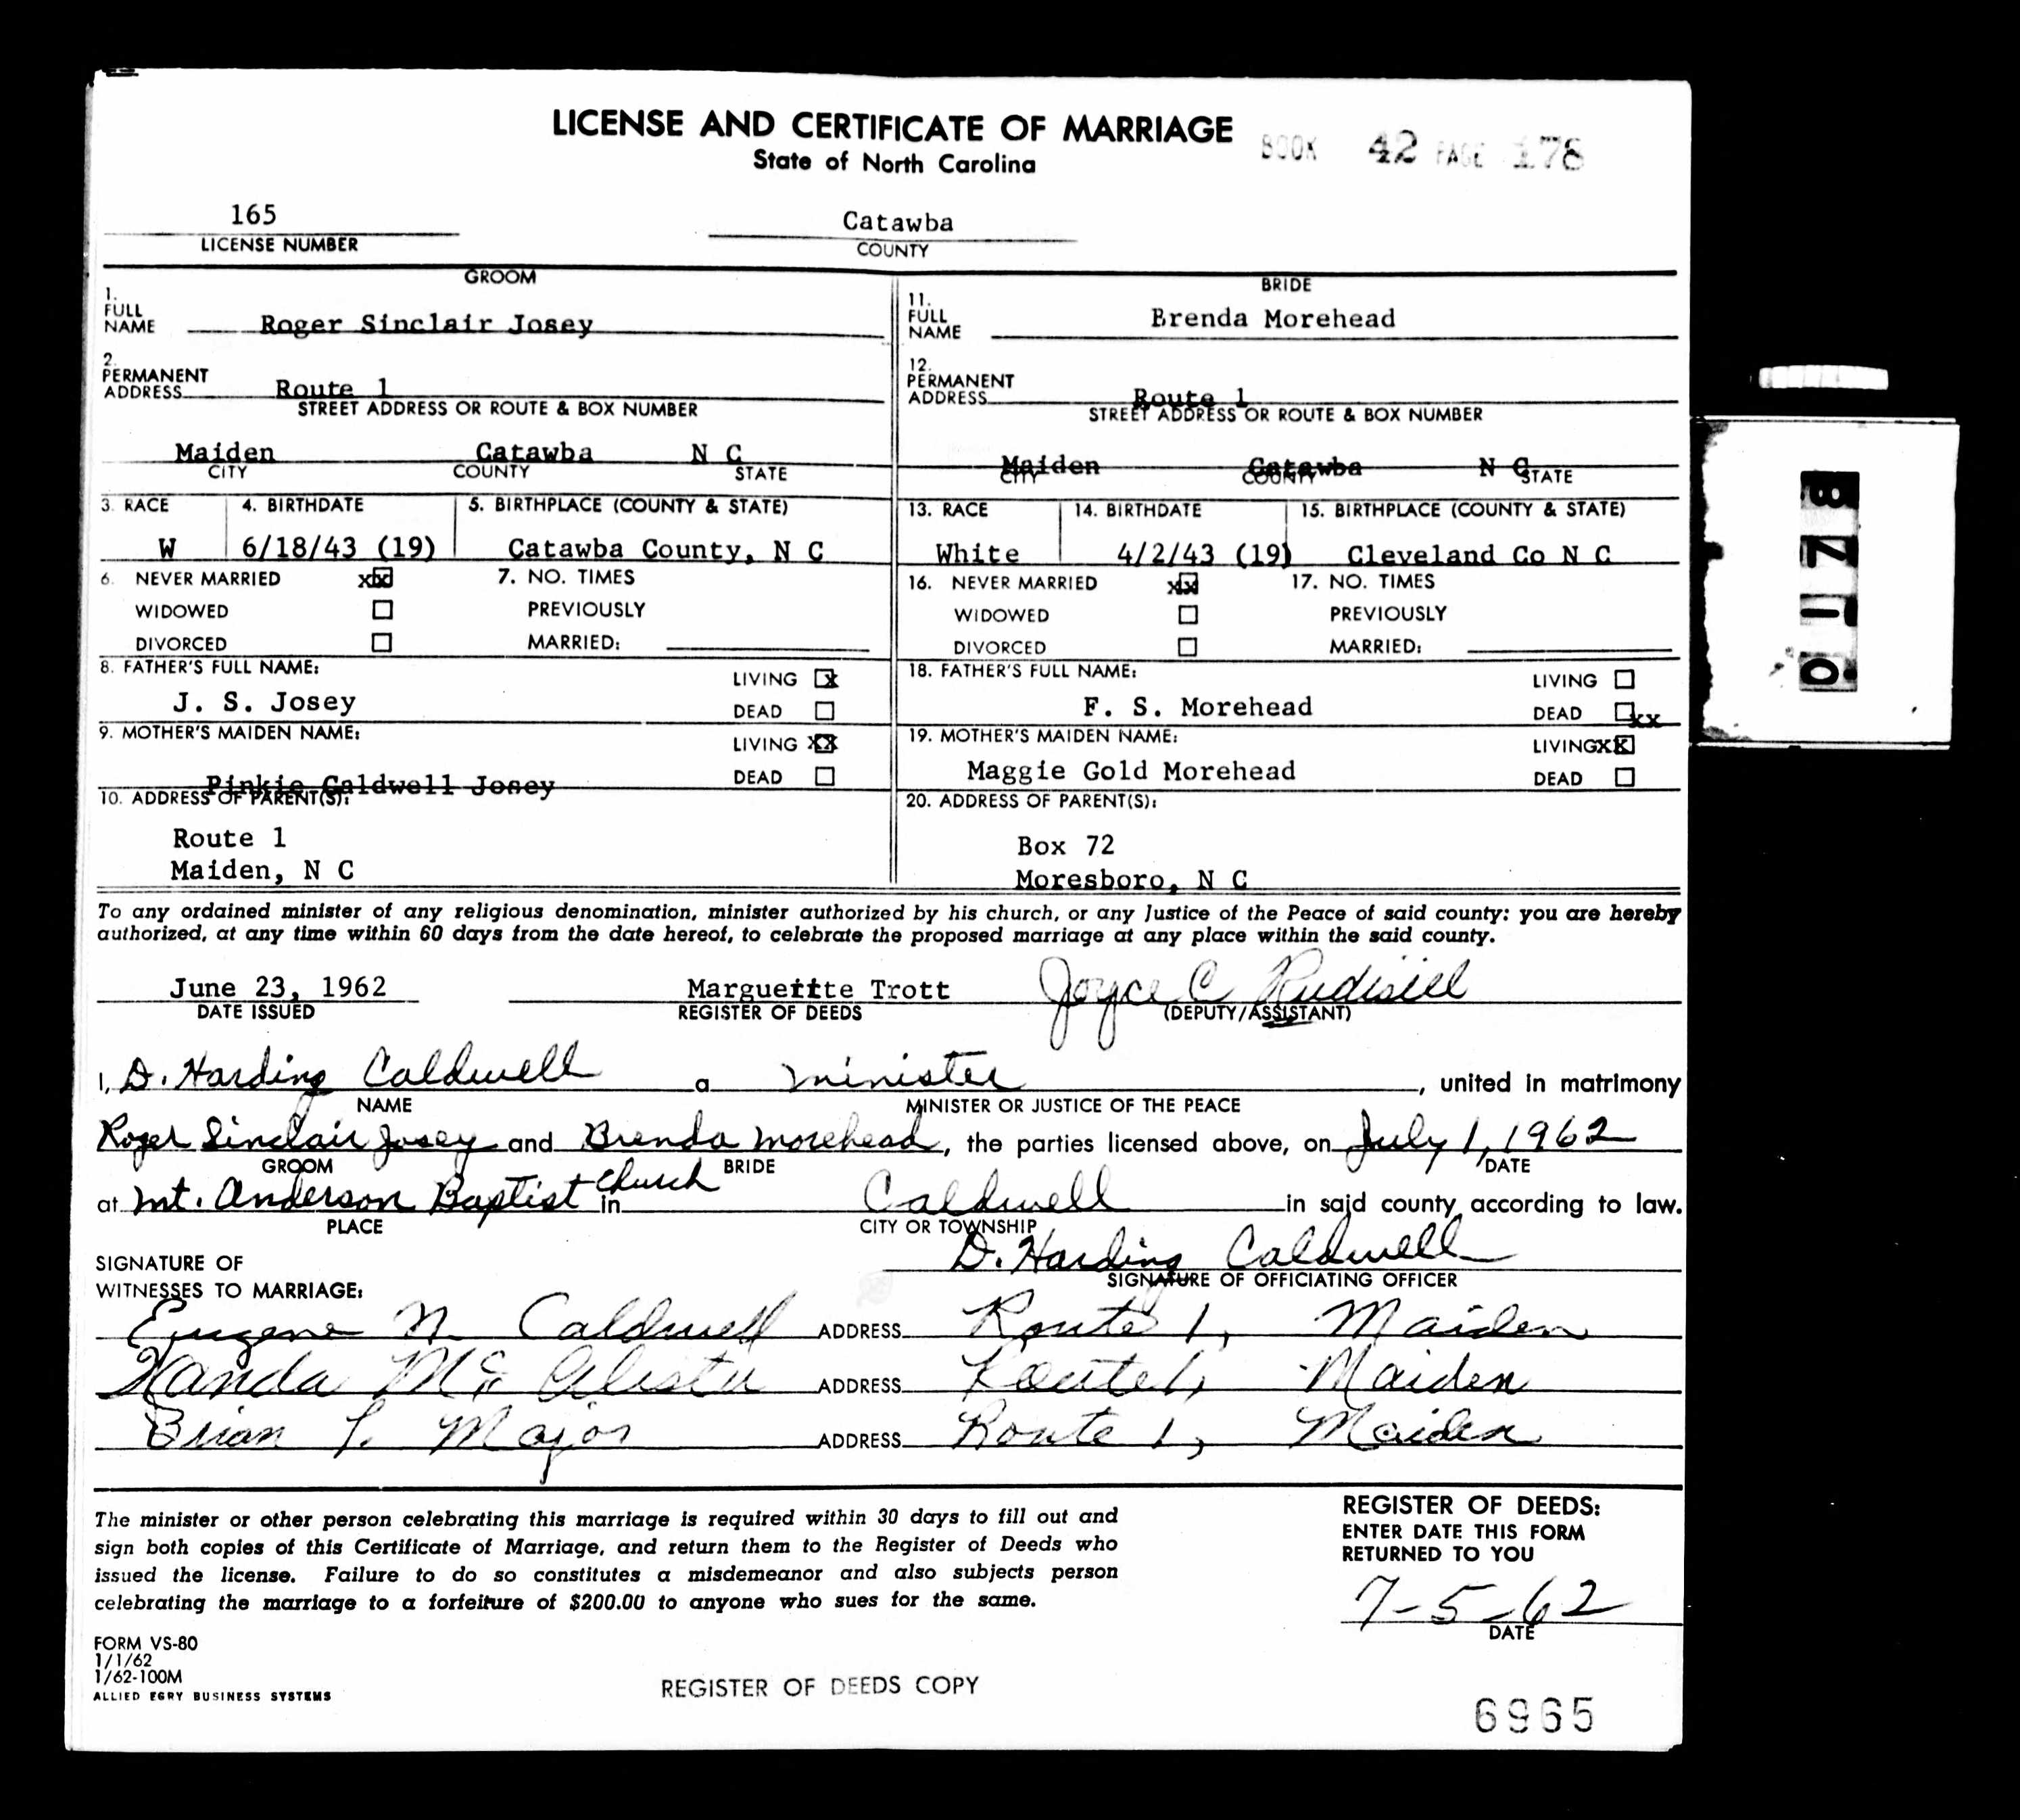 LICENSE AND CERTIFICATE OF MARRIAGE
State of North Carolina
BOOK 42 PAGE 178
165
LICENSE NUMBER
Catawba
COUNTY
GROOM
1. FULL NAME Roger Sinclair Josey
2. PERMANENT ADDRESS Route 1
STREET ADDRESS OR ROUTE & BOX NUMBER
Maiden Catawba N C
CITY COUNTY STATE
3. RACE 4. BIRTHDATE 5. BIRTHPLACE (COUNTY & STATE)
W 6/18/43 (19) Catawba County, N C
6. NEVER MARRIED xx 7. NO. TIMES
WIDOWED PREVIOUSLY
DIVORCED MARRIED:
8. FATHER'S FULL NAME: LIVING x
J. S. Josey DEAD
9. MOTHER'S MAIDEN NAME: LIVING xx
Pinkie Caldwell Josey DEAD
10. ADDRESS OF PARENT(S):
Route 1
Maiden, N C
BRIDE
11. FULL NAME Brenda Morehead
12. PERMANENT ADDRESS Route 1
STREET ADDRESS OR ROUTE & BOX NUMBER
Maiden Catawba N C
CITY COUNTY STATE
13. RACE 14. BIRTHDATE 15. BIRTHPLACE (COUNTY & STATE)
White 4/2/43 (19) Cleveland Co N C
16. NEVER MARRIED xx 17. NO. TIMES
WIDOWED PREVIOUSLY
DIVORCED MARRIED:
18. FATHER'S FULL NAME: LIVING
F. S. Morehead DEAD xx
19. MOTHER'S MAIDEN NAME: LIVING xx
Maggie Gold Morehead DEAD
20. ADDRESS OF PARENT(S):
Box 72
Moresboro, N C
To any ordained minister of any religious denomination, minister authorized by his church, or any Justice of the Peace of said county: you are hereby
authorized, at any time within 60 days from the date hereof, to celebrate the proposed marriage at any place within the said county.
June 23, 1962 Marguerite Trott Joyce C Rudisill
DATE ISSUED REGISTER OF DEEDS (DEPUTY/ASSISTANT)
I, D. Harding Caldwell a minister, united in matrimony
NAME MINISTER OR JUSTICE OF THE PEACE
Roger Sinclair Josey and Brenda Morehead, the parties licensed above, on July 1, 1962
GROOM BRIDE DATE
at Mt. Anderson Baptist Church in Caldwell in said county according to law.
PLACE CITY OR TOWNSHIP
D. Harding Caldwell
SIGNATURE OF OFFICIATING OFFICER
SIGNATURE OF
WITNESSES TO MARRIAGE:
Eugene N. Caldwell ADDRESS Route 1, Maiden
Wanda Mc Alister ADDRESS Route 1, Maiden
Brian L. Major ADDRESS Route 1, Maiden
The minister or other person celebrating this marriage is required within 30 days to fill out and
sign both copies of this Certificate of Marriage, and return them to the Register of Deeds who
issued the license. Failure to do so constitutes a misdemeanor and also subjects person
celebrating the marriage to a forfeiture of $200.00 to anyone who sues for the same.
REGISTER OF DEEDS:
ENTER DATE THIS FORM
RETURNED TO YOU
7-5-62
DATE
FORM VS-80
1/1/62
1/62-100M
ALLIED EGRY BUSINESS SYSTEMS
REGISTER OF DEEDS COPY
6965
0178